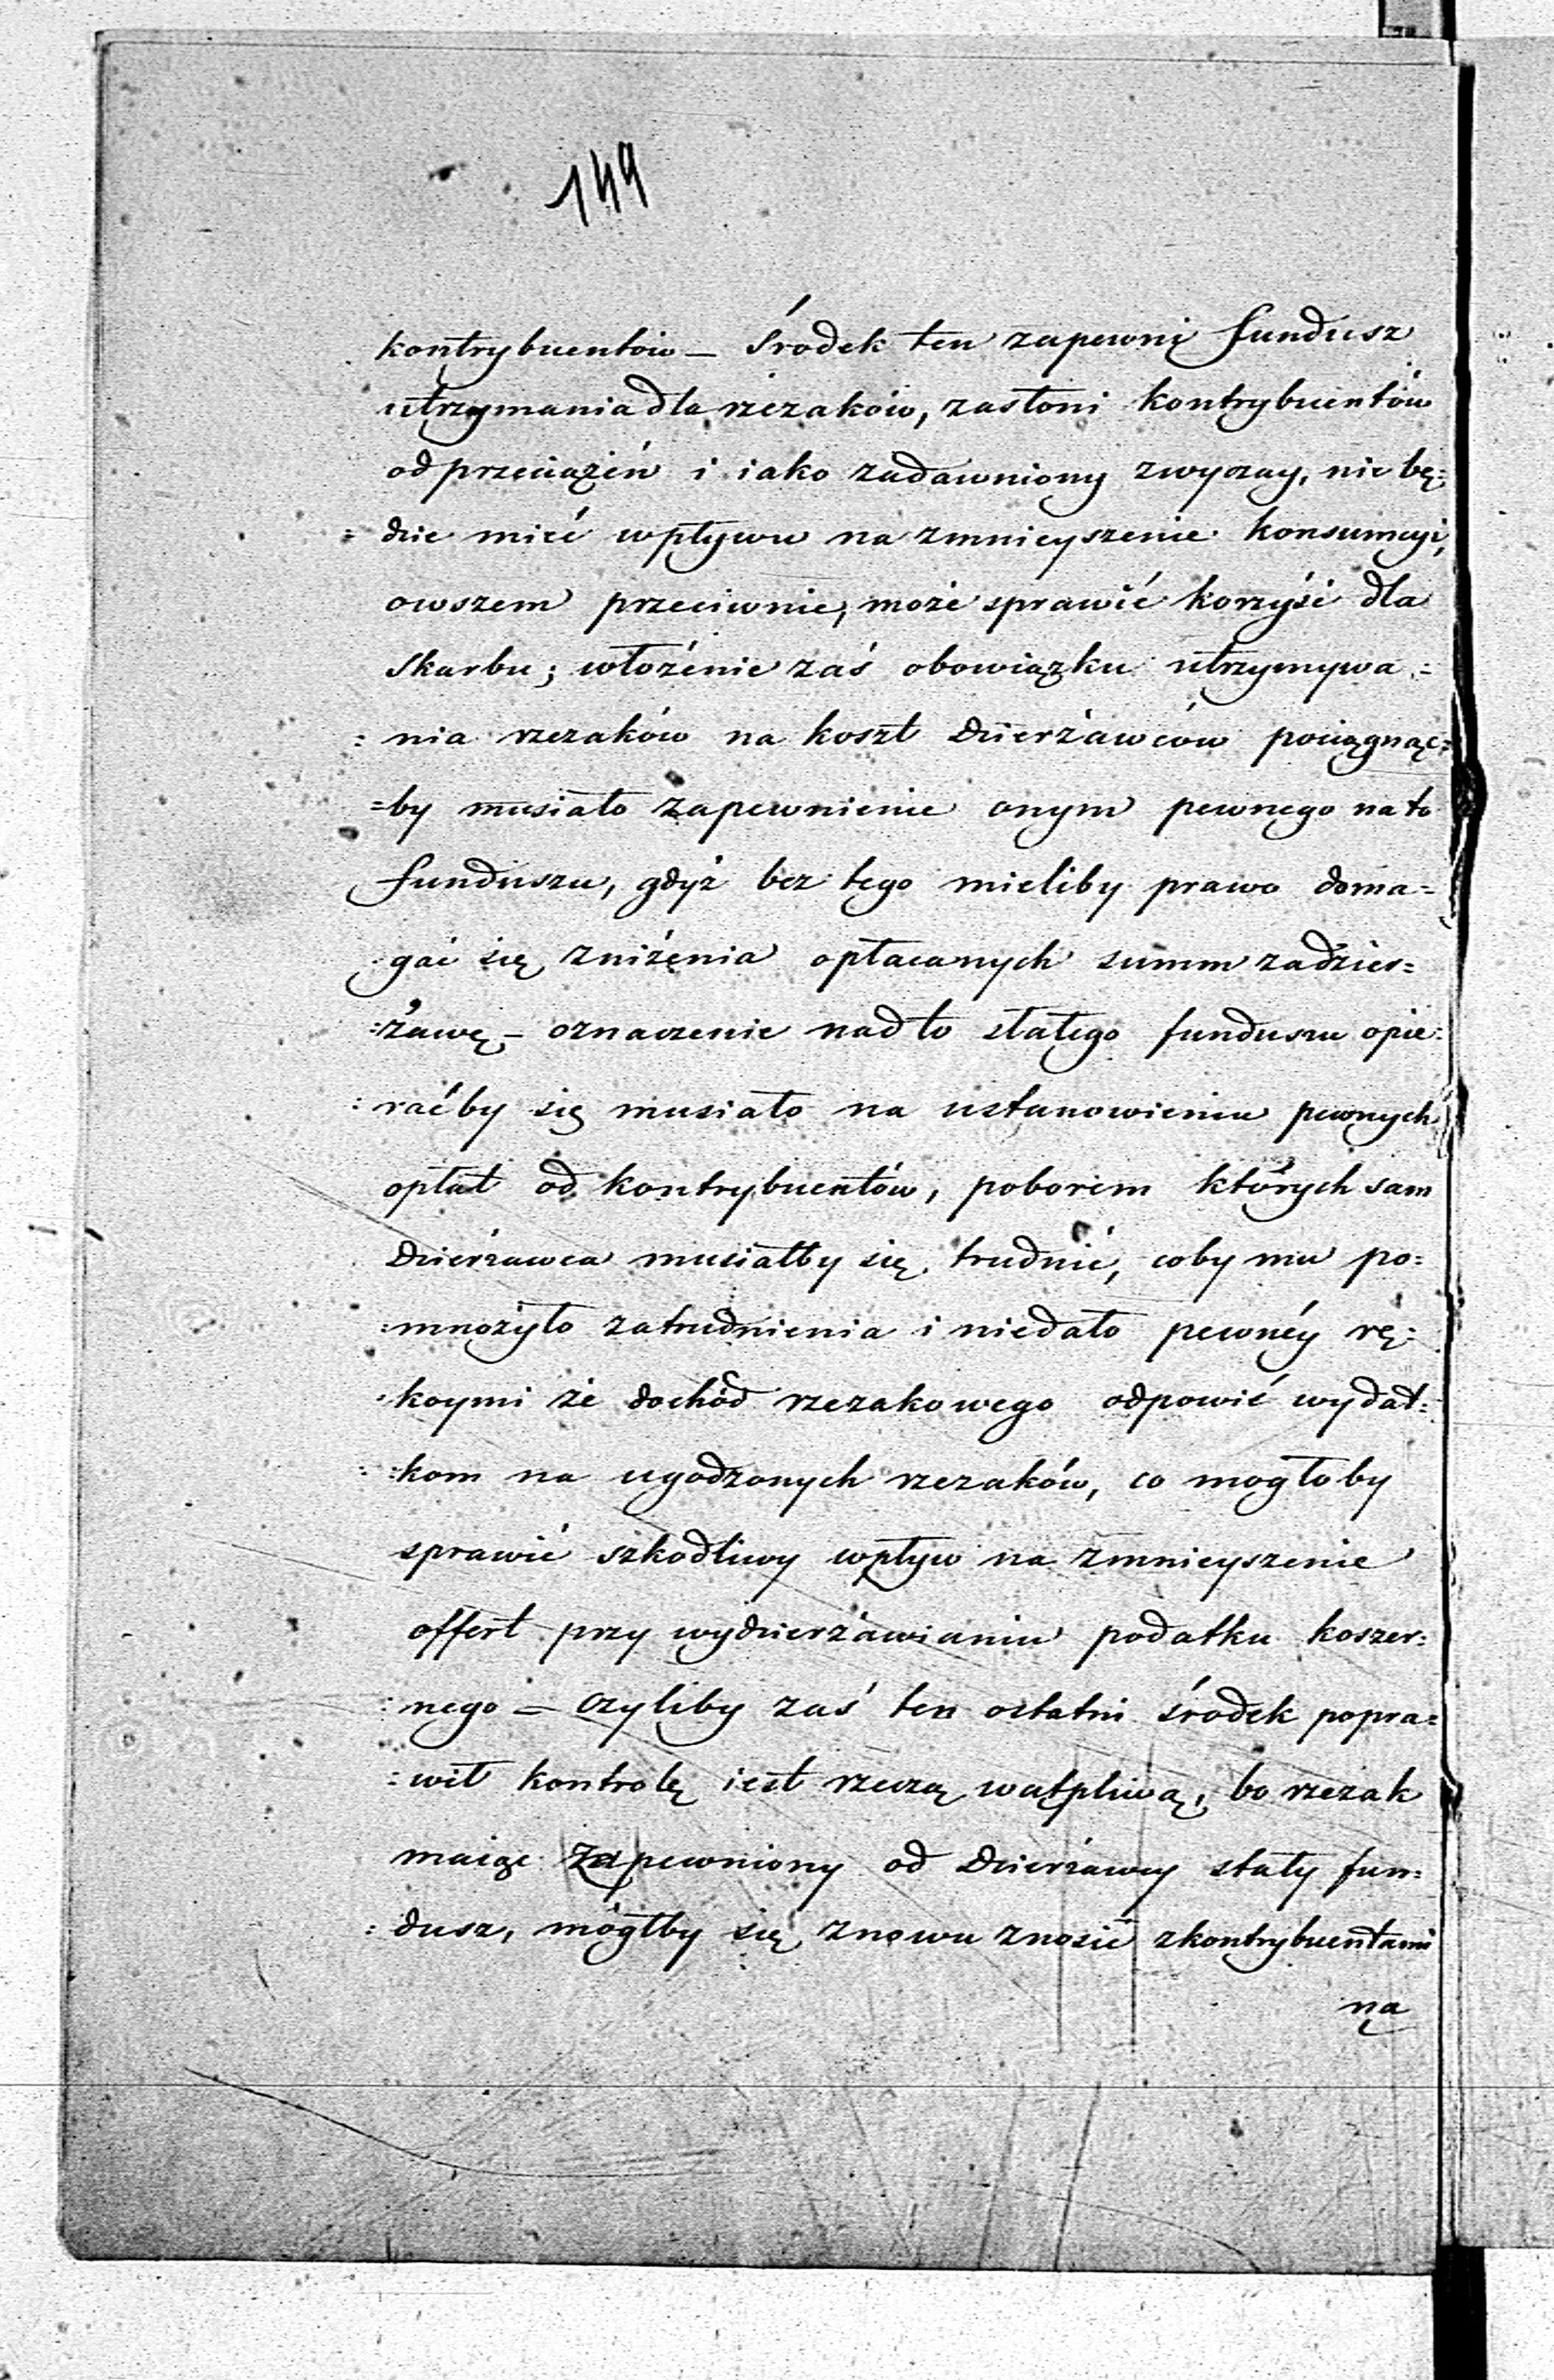 149
kontrybuentów – Środek ten zapewni fundusz
utrzymania dla rzezaków, zasłoni kontrybuentów
od przeciążeń i iako zadawniony zwyczay, nie bę=
=dzie mieć wpływu na zmnieyszenie konsumcyi,
owszem przeciwnie, może sprawić korzyść dla
Skarbu; włożenie zaś obowiązku utrzymywa=
=nia rzezaków na koszt Dzierżawców pociągnąć=
=by musiało zapewnienie onym pewnego na to
funduszu, gdyż bez tego mieliby prawo doma=
gać się zniżenia opłacanych summ za dzier=
=żawę – oznaczenie nadto stałego funduszu opie=
=rać by się musiało na ustanowieniu pewnych
opłat od kontrybuentów, poborem których sam
Dzierżawca musiałby się trudnić, coby mu po=
=mnożyło zatrudnienia i niedało pewnéy rę=
=koymi że dochód rzezakowego odpowié wydat=
=kom na ugodzonych rzezaków, co mogłoby
sprawić szkodliwy wpływ na zmnieyszenie
offert przy wydzierżawianiu podatku koszer=
=nego = czyliby zaś ten ostatni środek popra=
=wił kontrolę iest rzeczą wątpliwą, bo rzezak
maiąc zapewniony od Dzierżawcy stały fun=
=dusz, mógłby się znowu znosić z kontrybuentami
na